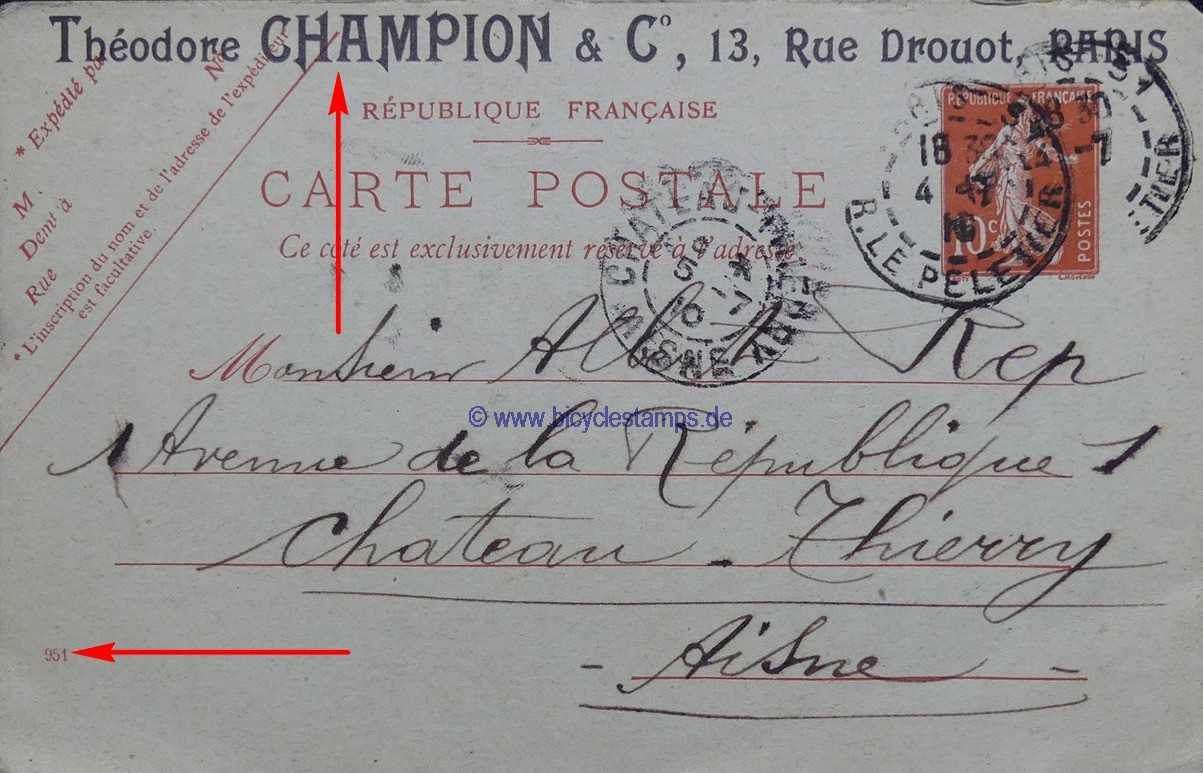 Théodore CHAMPION & Cº, 13, Rue Drouot, PARIS
* Expédié par
M
Nº
Demt à
Rue
* L'inscription du nom et de l'adresse de l'expéditeur
est facultative.
RÉPUBLIQUE FRANÇAISE
CARTE POSTALE
Ce côté est exclusivement réservé à l'adresse
REPUBLIQUE FRANÇAISE
10 c
POSTES
PARIS
18
4
R. LE PELETIER
30
-7
TIER
CHATEAU-THIERRY
AISNE
Monsieur Albert Rep
1 Avenue de la République 1
© www.bicyclestamps.de
Chateau-Thierry
- Aisne -
951